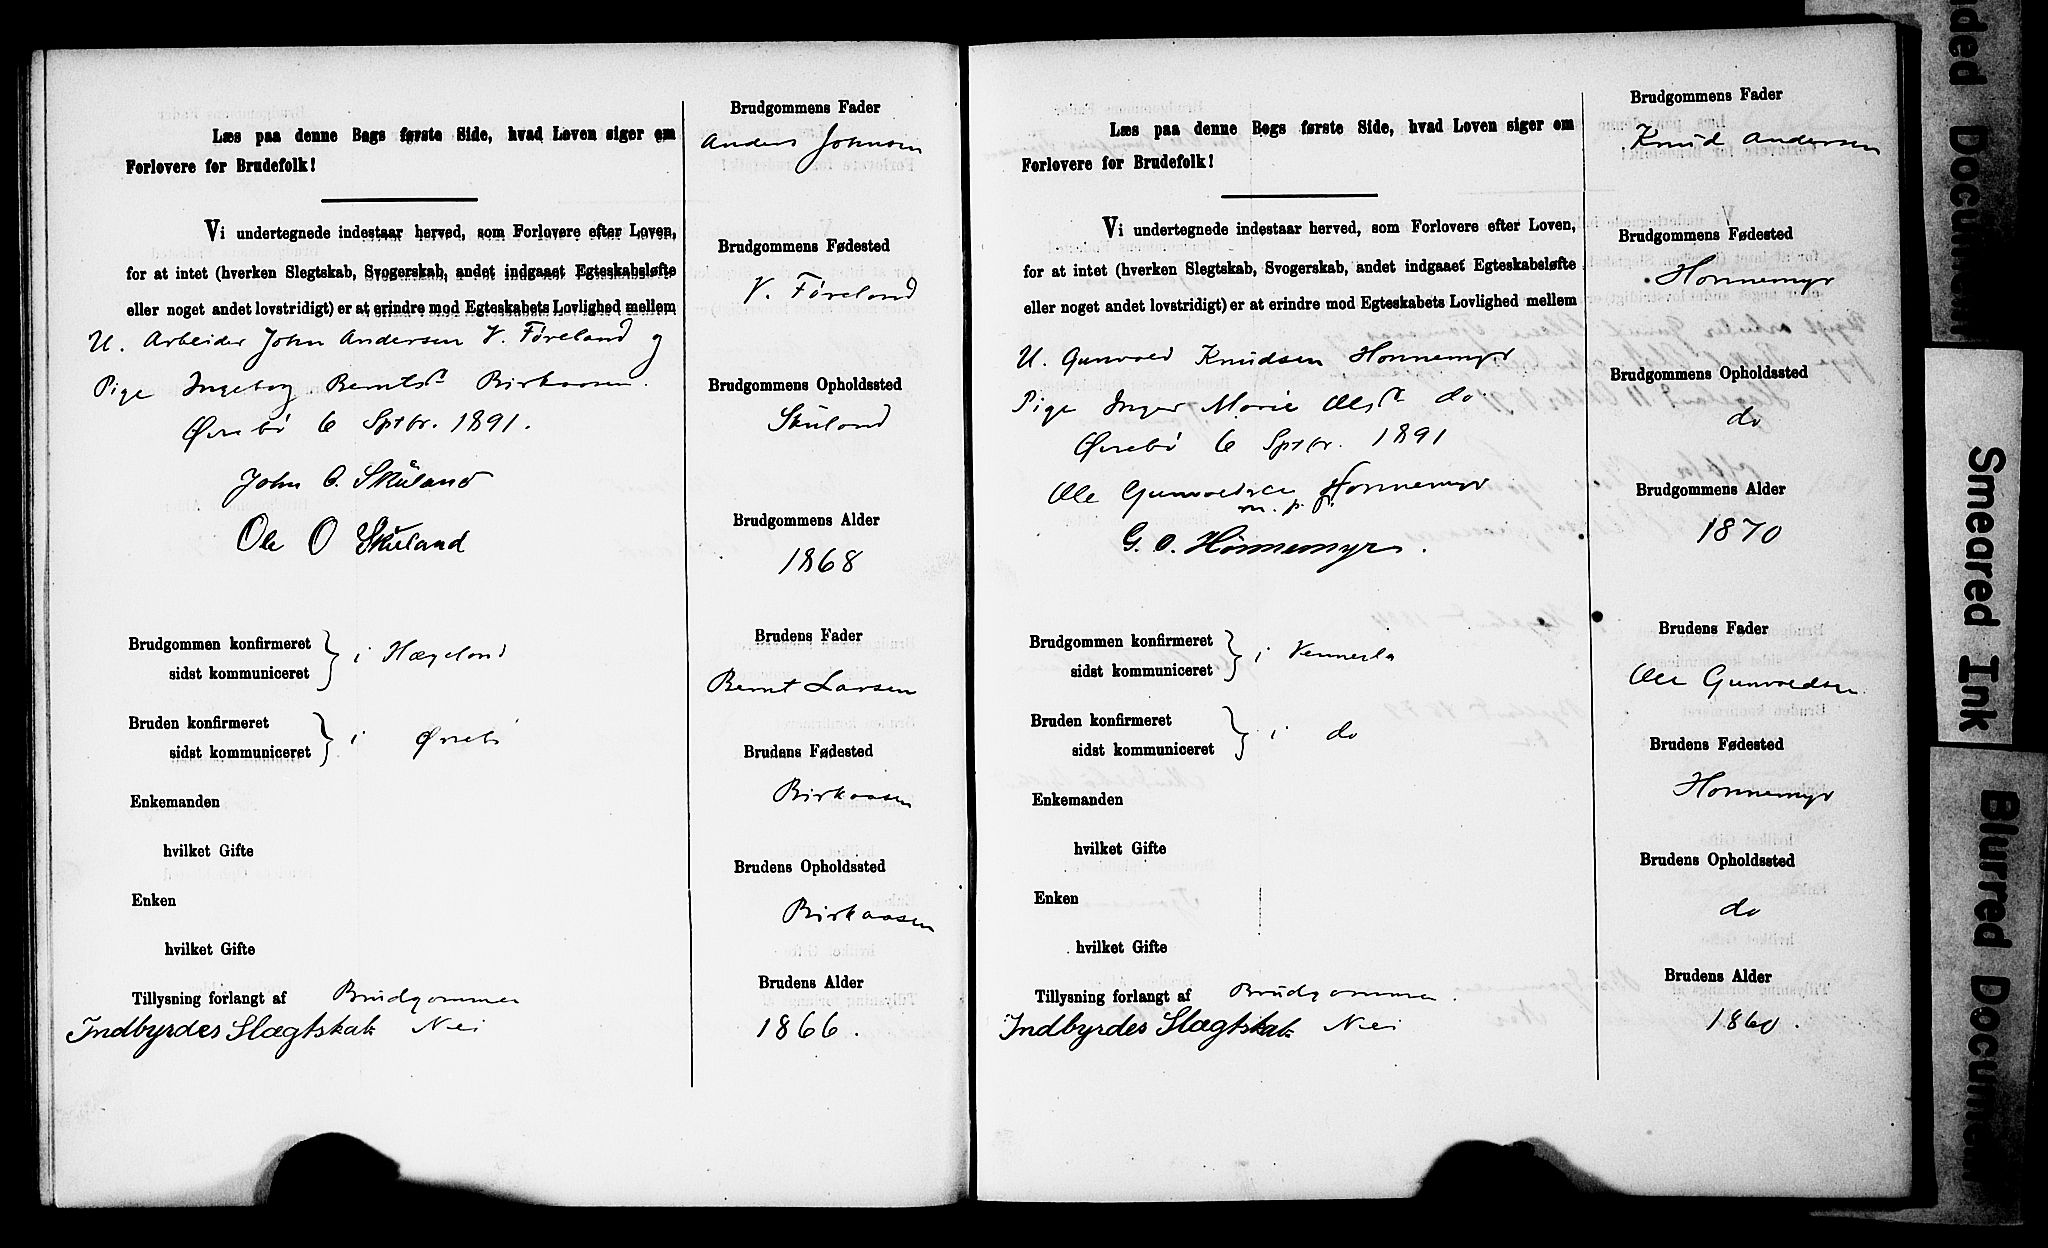 Læs paa denne Bogs første Side, hvad Loven siger om
Forlovere for Brudefolk!
Vi undertegnede indestaar herved, som Forlovere efter Loven,
for at intet (hverken Slegtskab, Svogerskab, andet indgaaet Egteskabsløfte
eller noget andet lovstridigt) er at erindre mod Egteskabets Lovlighed mellem
U. Arbeider John Andersen V. Føreland og
Pige Ingeborg Berntsd. Birkaasen.
Øvrebø 6 Sptbr. 1891.
John O. Skuland
Ole O Skuland
Brudgommen konfirmeret
sidst kommuniceret } i Hægeland
Bruden konfirmeret
sidst kommuniceret } i Øvrebø
Enkemanden
hvilket Gifte
Enken
hvilket Gifte
Tillysning forlangt af Brudgommen
Indbyrdes Slægtskab Nei
Brudgommens Fader
Anders Johnsen
Brudgommens Fødested
V. Føreland
Brudgommens Opholdssted
Skuland
Brudgommens Alder
1868
Brudens Fader
Bernt Larsen
Brudens Fødested
Birkaasen
Brudens Opholdssted
Birkaasen
Brudens Alder
1866.
Læs paa denne Bogs første Side, hvad Loven siger om
Forlovere for Brudefolk!
Vi undertegnede indestaar herved, som Forlovere efter Loven,
for at intet (hverken Slegtskab, Svogerskab, andet indgaaet Egteskabsløfte
eller noget andet lovstridigt) er at erindre mod Egteskabets Lovlighed mellem
U. Gunvold Knudsen Honnemyr
Pige Inger Marie Olsd. do
Øvrebø 6 Sptbr. 1891
Ole Gunvoldsen Honnemyr
m. p. f.
G. O. Hønnemyr.
Brudgommen konfirmeret
sidst kommuniceret } i Vennesla
Bruden konfirmeret
sidst kommuniceret } i do
Enkemanden
hvilket Gifte
Enken
hvilket Gifte
Tillysning forlangt af Brudgommen.
Indbyrdes Slægtskab Nei
Brudgommens Fader
Knud Andersen
Brudgommens Fødested
Honnemyr
Brudgommens Opholdssted
do
Brudgommens Alder
1870
Brudens Fader
Ole Gunvoldsen
Brudens Fødested
Honnemyr
Brudens Opholdssted
do
Brudens Alder
1860.
Smeared Ink
Blurred Document